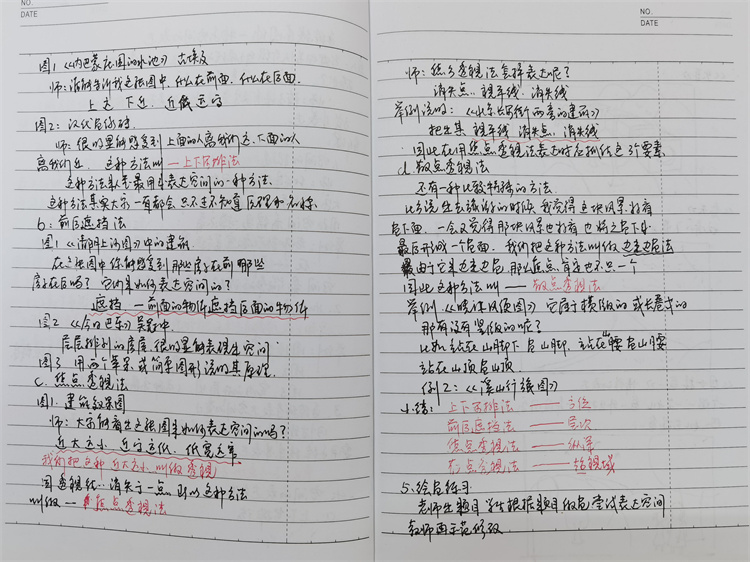 NO.
DATE
图1《内巴蒙庄园的水池》 古埃及
师: 请你告诉我这张图中, 什么在前面, 什么在后面.
上远 下近. 近低远高
图2: 汉代石刻
师: 很明显的感受到上面的人离我们远、下面的人
离我们近. 这种方法叫 — 上下西排法
这种方法人类最用来表达空间的一种方法.
这种方法其实大家一直都会 只不过不知道原理和名称
b: 前后遮挡法
图1《清明上河图》中的建筑
在这张图中你能感受到那些房子在前 哪些
房子在后吗? 它们是如何表达空间的?
遮挡 — 前面的物体遮挡后面的物体
图2《今日巴东》吴冠中
层层排列的房屋, 很明显的表现出空间
图3 用两个苹果或简单图形说明其原理.
c. 焦点透视法
图1. 建筑效果图
师: 大家能看出这张图是如何表达空间的吗?
近大远小、近高远低、近宽远窄
我们把这种 近大远小 叫做 透视
因透视线消失于一点, 所以这种方法
叫做 — 焦点透视法
NO.
DATE
师: 焦点透视法怎样表达呢?
消失点、视平线、消失线
举例说明: 《北京长安街两旁的建筑》
把出其 视平线 消失点、消失线
因此在用焦点透视法表达时应抓住这3个要素
d 散点透视法
还有一种比较特殊的方法
比方说出去旅游的时候, 我觉得这块风景好看
画下面, 一会又觉得那块风景也好看 也将之画下来
最后形成一个画面. 我们把这种方法叫做边走边画法
由于它是边走边画, 那么焦点肯定也不只一个
因此这种方法叫 — 散点透视法
举例《清明上河图》它属于横版的 或长卷式的
那有没有竖版的呢?
比如站在山脚下画山脚, 站在山腰画山腰
站在山顶画山顶.
例2: 《溪山行旅图》
小结: 上下西排法 — 方位
前后遮挡法 — 层次
焦点透视法 — 纵深
散点透视法 — 超视域
5. 绘画练习
老师出题目 学生根据题目作画尝试表达空间
教师再示范修改